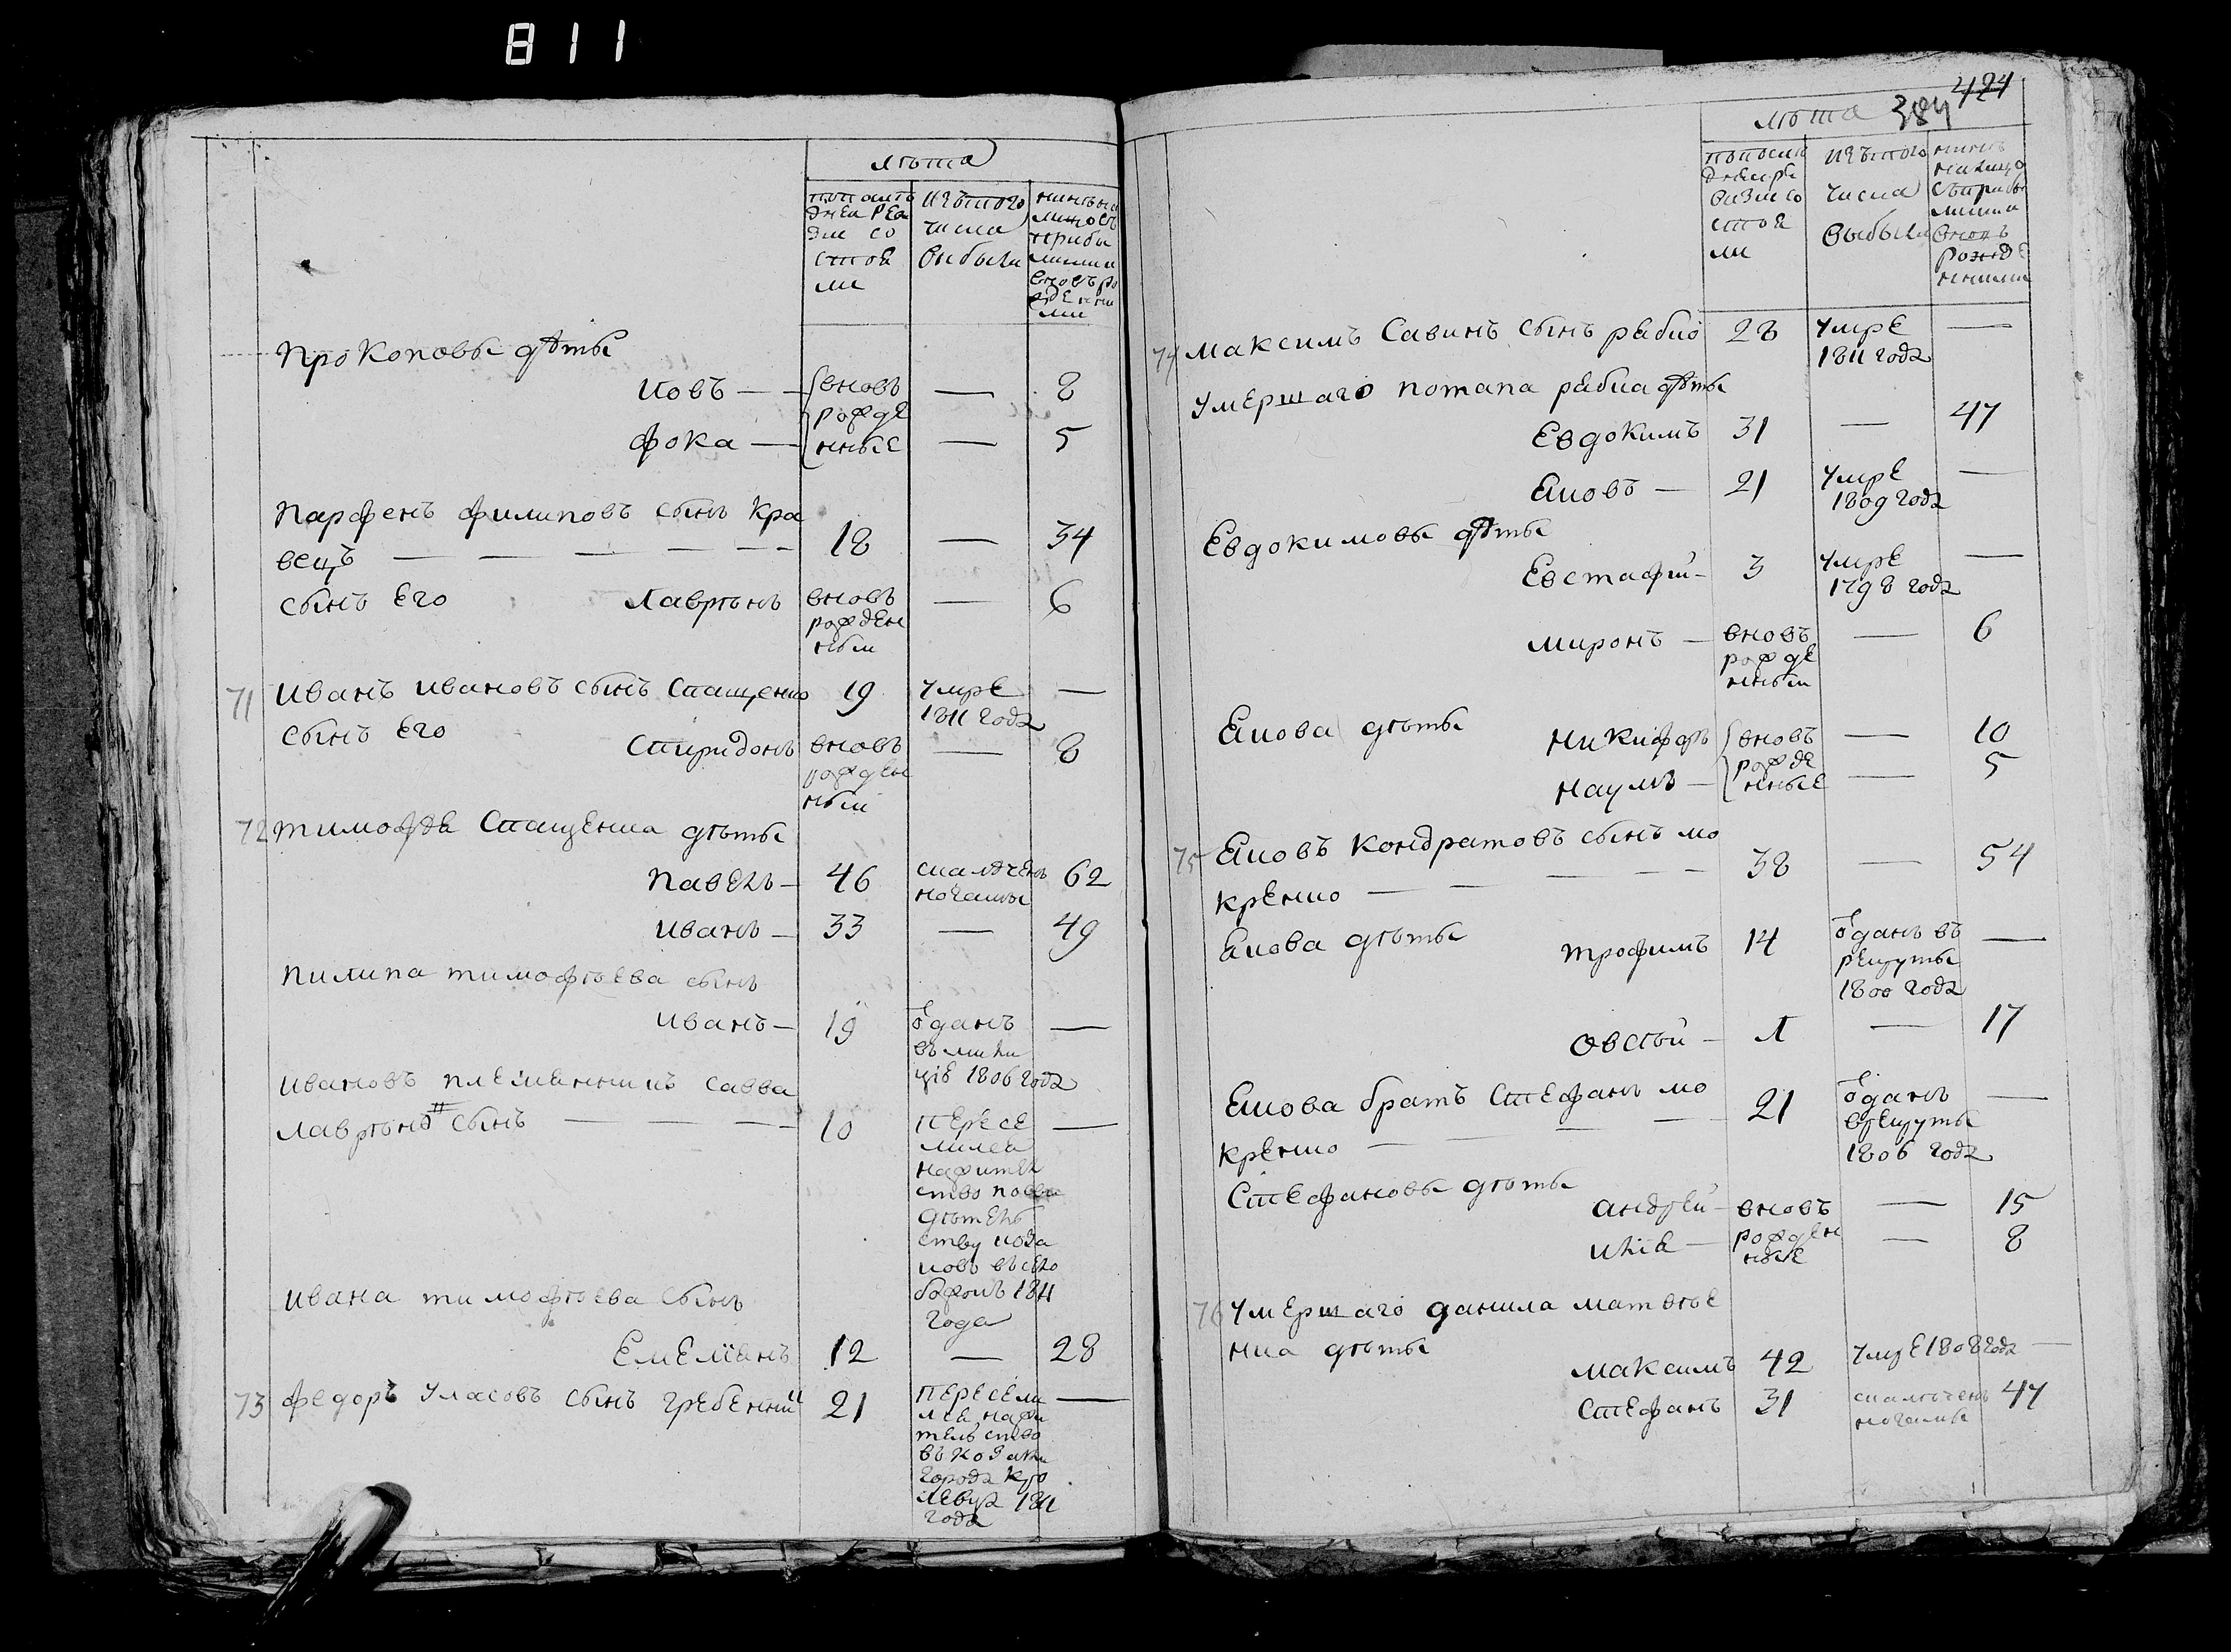 811
лѣта
попослѣ
дней реви
зіи со
стоя
ли
изътого
числа
выбыли
нынѣ на
лицо съ
прибы
лыми и
вновь ро
жденны
ми
Прокоповы дѣти
Иовъ — вновь — 8
рожде
Фока — нные — 5
Парфенъ Филиповъ сынъ Кра
вецъ — 18 — 34
сынъ его Лаврѣнъ вновь — 6
рожден
ный
71 Иванъ Ивановъ сынъ Спащенко 19 умре —
1811 года
сынъ его Спиридонъ вновь — 8
рожден
ный
72 Тимофѣя Спащенка дѣты
Павелъ — 46 62
Иванъ — 33 — 49
Пилипа Тимофѣева сынъ
Иванъ — 19 отданъ —
въ мили
цiю 1806 года
Ивановъ племенникъ Савва
Лаврѣновъ сынъ — 10 пересе —
лился
нажител
ство
1811
года
Ивана Тимофѣева сынъ
Емелianъ 12 — 28
73 Федоръ Уласовъ сынъ Гребенный 21 пересели —
лся нажи
тельство
въ козаки
города Кро
левца 1811
года
424
лѣта 384
попослѣ
дней ре
визіи со
стоя
ли
изътого
числа
выбыли
нынѣ
налицо
съприбы
лыми
вновь
рожде
нными
74 Максимъ Савинъ сынъ Рябко 28 умре —
1811 года
Умершаго Потапа Рябка дѣты
Евдокимъ 31 — 47
Яковъ — 21 умре —
1809 года
Евдокимовы дѣты
Евстафий — 3 умре —
1798 года
Миронъ — вновь — 6
рожде
нный
Якова дѣты Никифоръ вновь — 10
рожде
Наумъ — нные — 5
75 Яковъ Кондратовъ сынъ Мо
кренко — 38 — 54
Якова дѣты Трофимъ 14 отданъ въ —
рекруты
1800 года
Овсѣй — 1 — 17
Якова братъ Стефанъ Мо
кренко — 21 отданъ —
врекруты
1806 года
Стефановы дѣты
Андрей — вновь — 15
Илiя — рожден — 8
ные
76 Умершаго Данила Матвѣе
нка дѣты
Максимъ 42 умре 1808 года —
Стефанъ 31 47